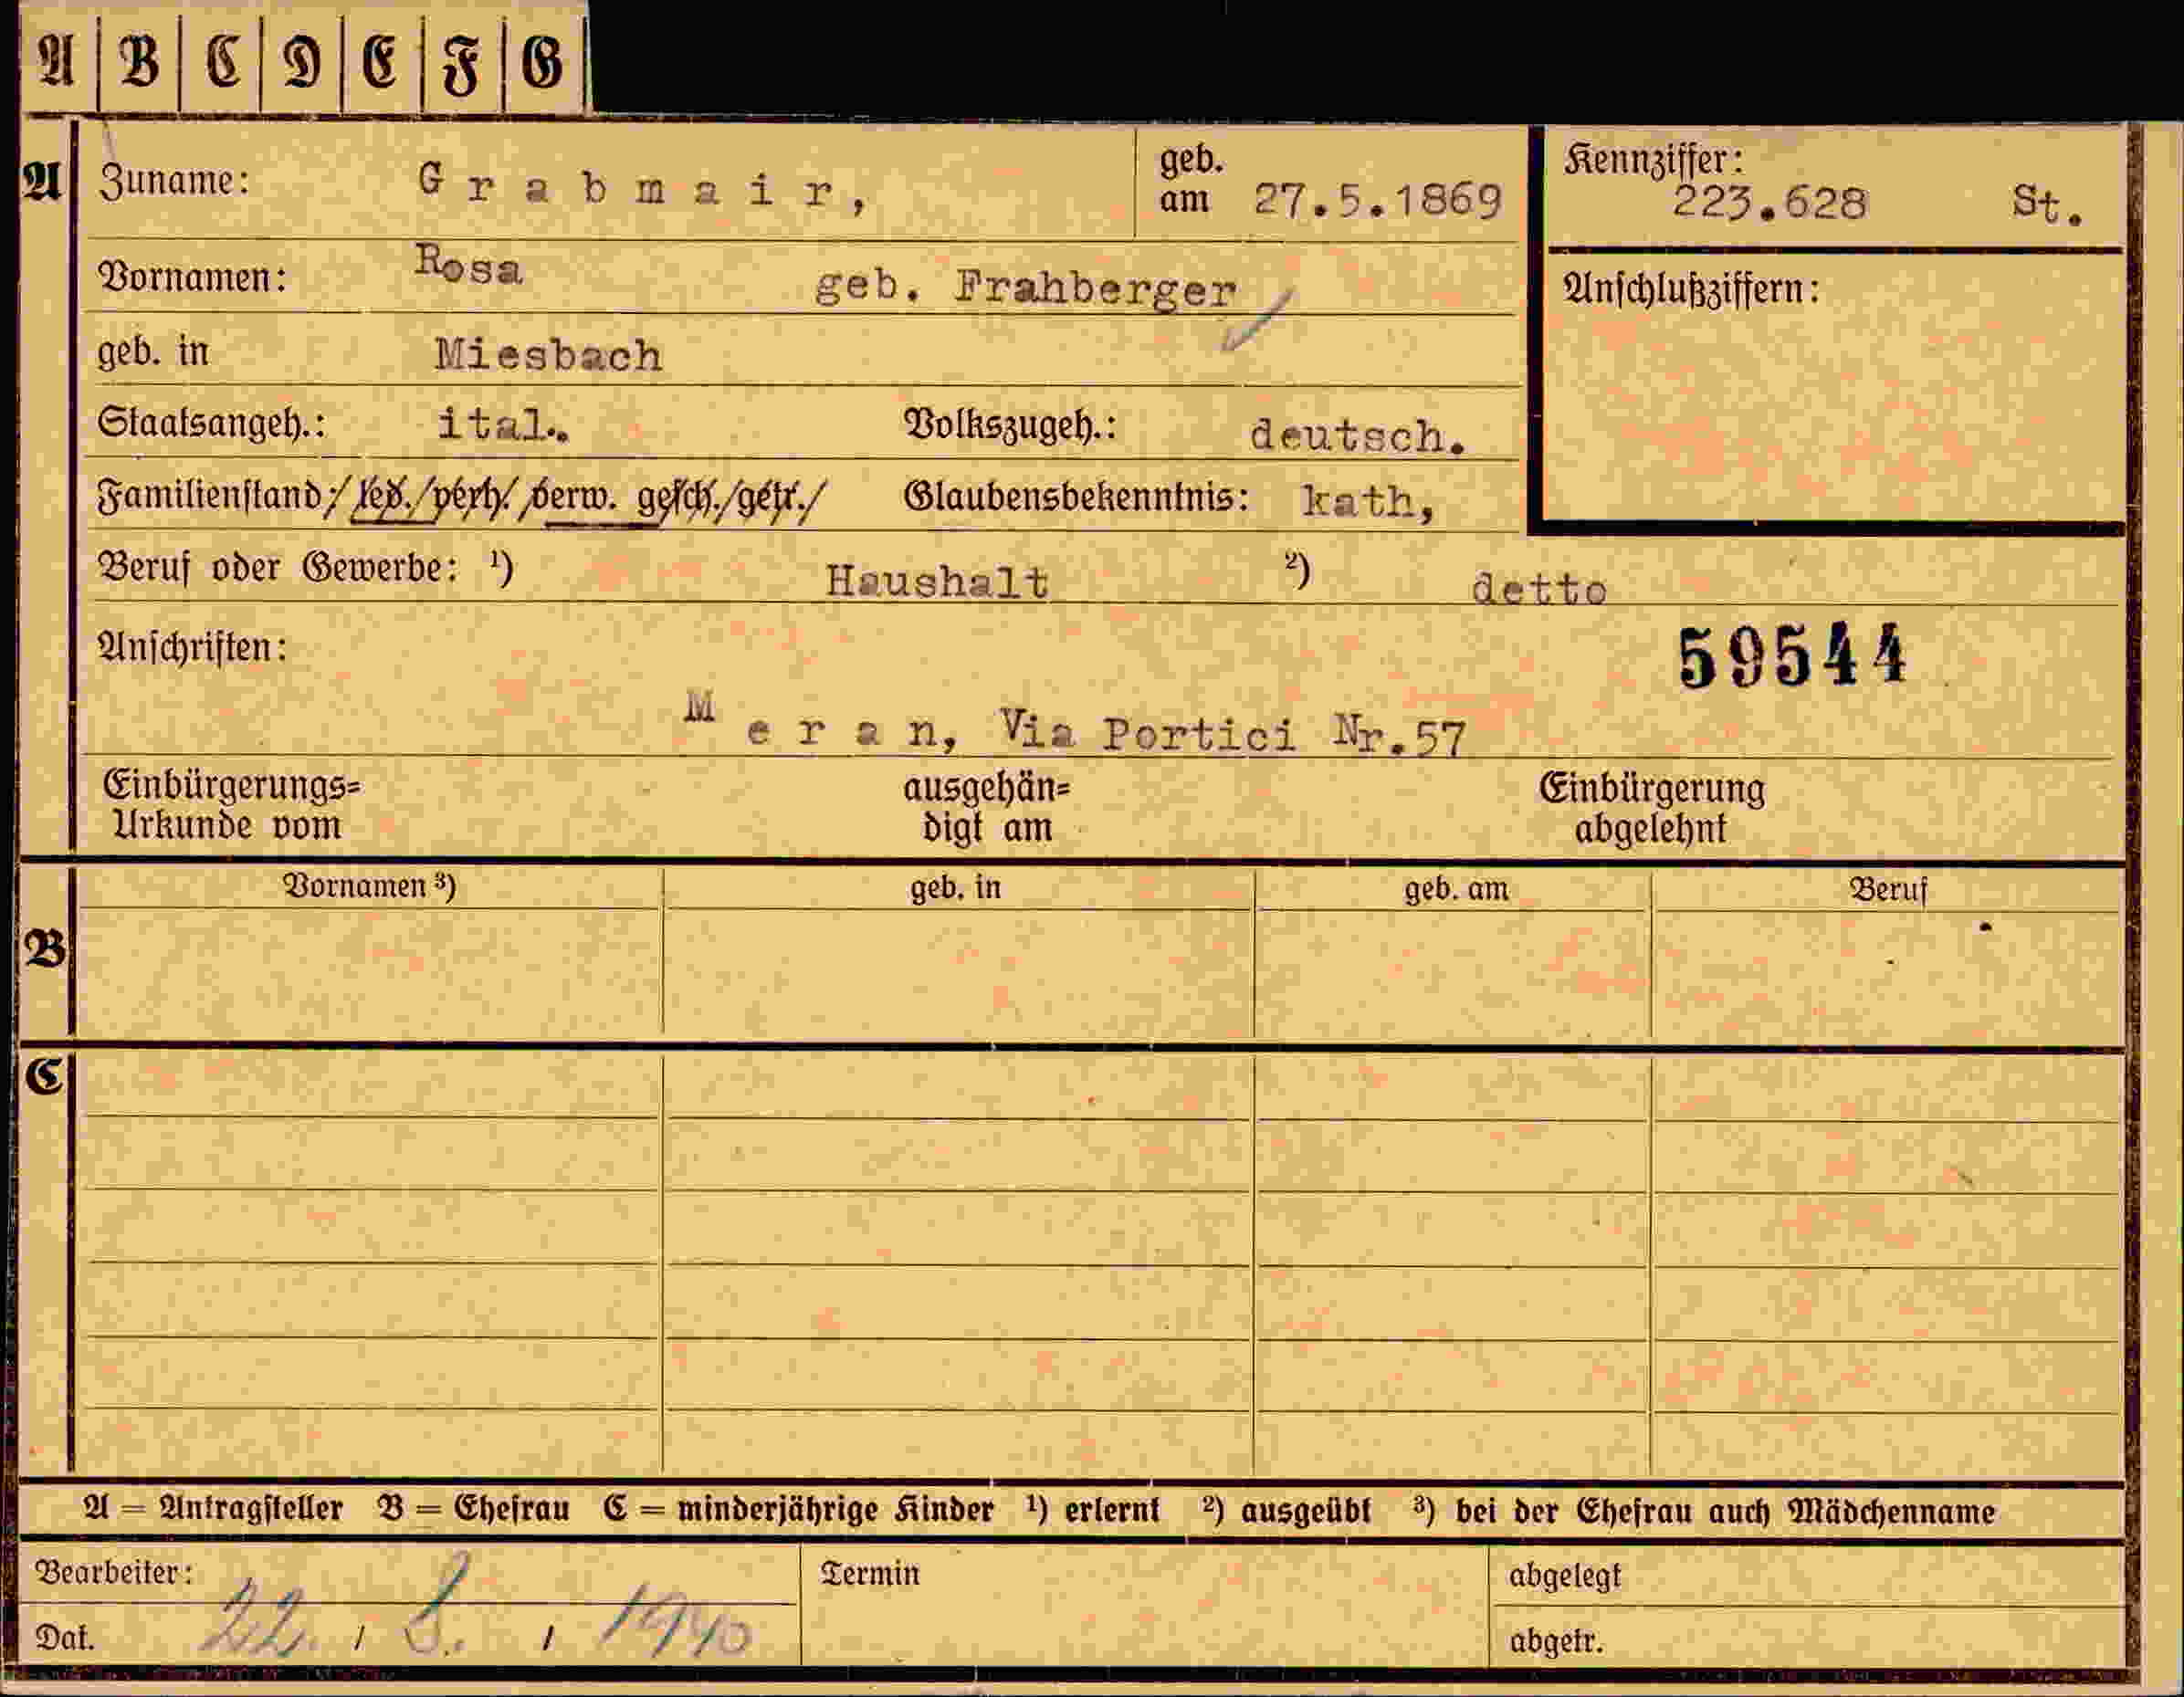 A B C D E F G
A Zuname: Grabmair, geb. am 27.5.1869 Kennziffer: 223.628 St.
Vornamen: Rosa geb. Frahberger Anschlußziffern:
geb. in Miesbach
Staatsangeh.: ital.. Volkszugeh.: deutsch.
Familienstand: led./verh. verw. gesch./getr./ Glaubensbekenntnis: kath,
Beruf oder Gewerbe: ¹) Haushalt ²) detto
Anschriften: 59544
Meran, Via Portici Nr.57
Einbürgerungs= ausgehän= Einbürgerung
Urkunde vom digt am abgelehnt
Vornamen ³) geb. in geb. am Beruf
B
C
A = Antragsteller B = Ehefrau C = minderjährige Kinder ¹) erlernt ²) ausgeübt ³) bei der Ehefrau auch Mädchenname
Bearbeiter: Termin abgelegt
Dat. 22. / 8. / 1940 abgetr.